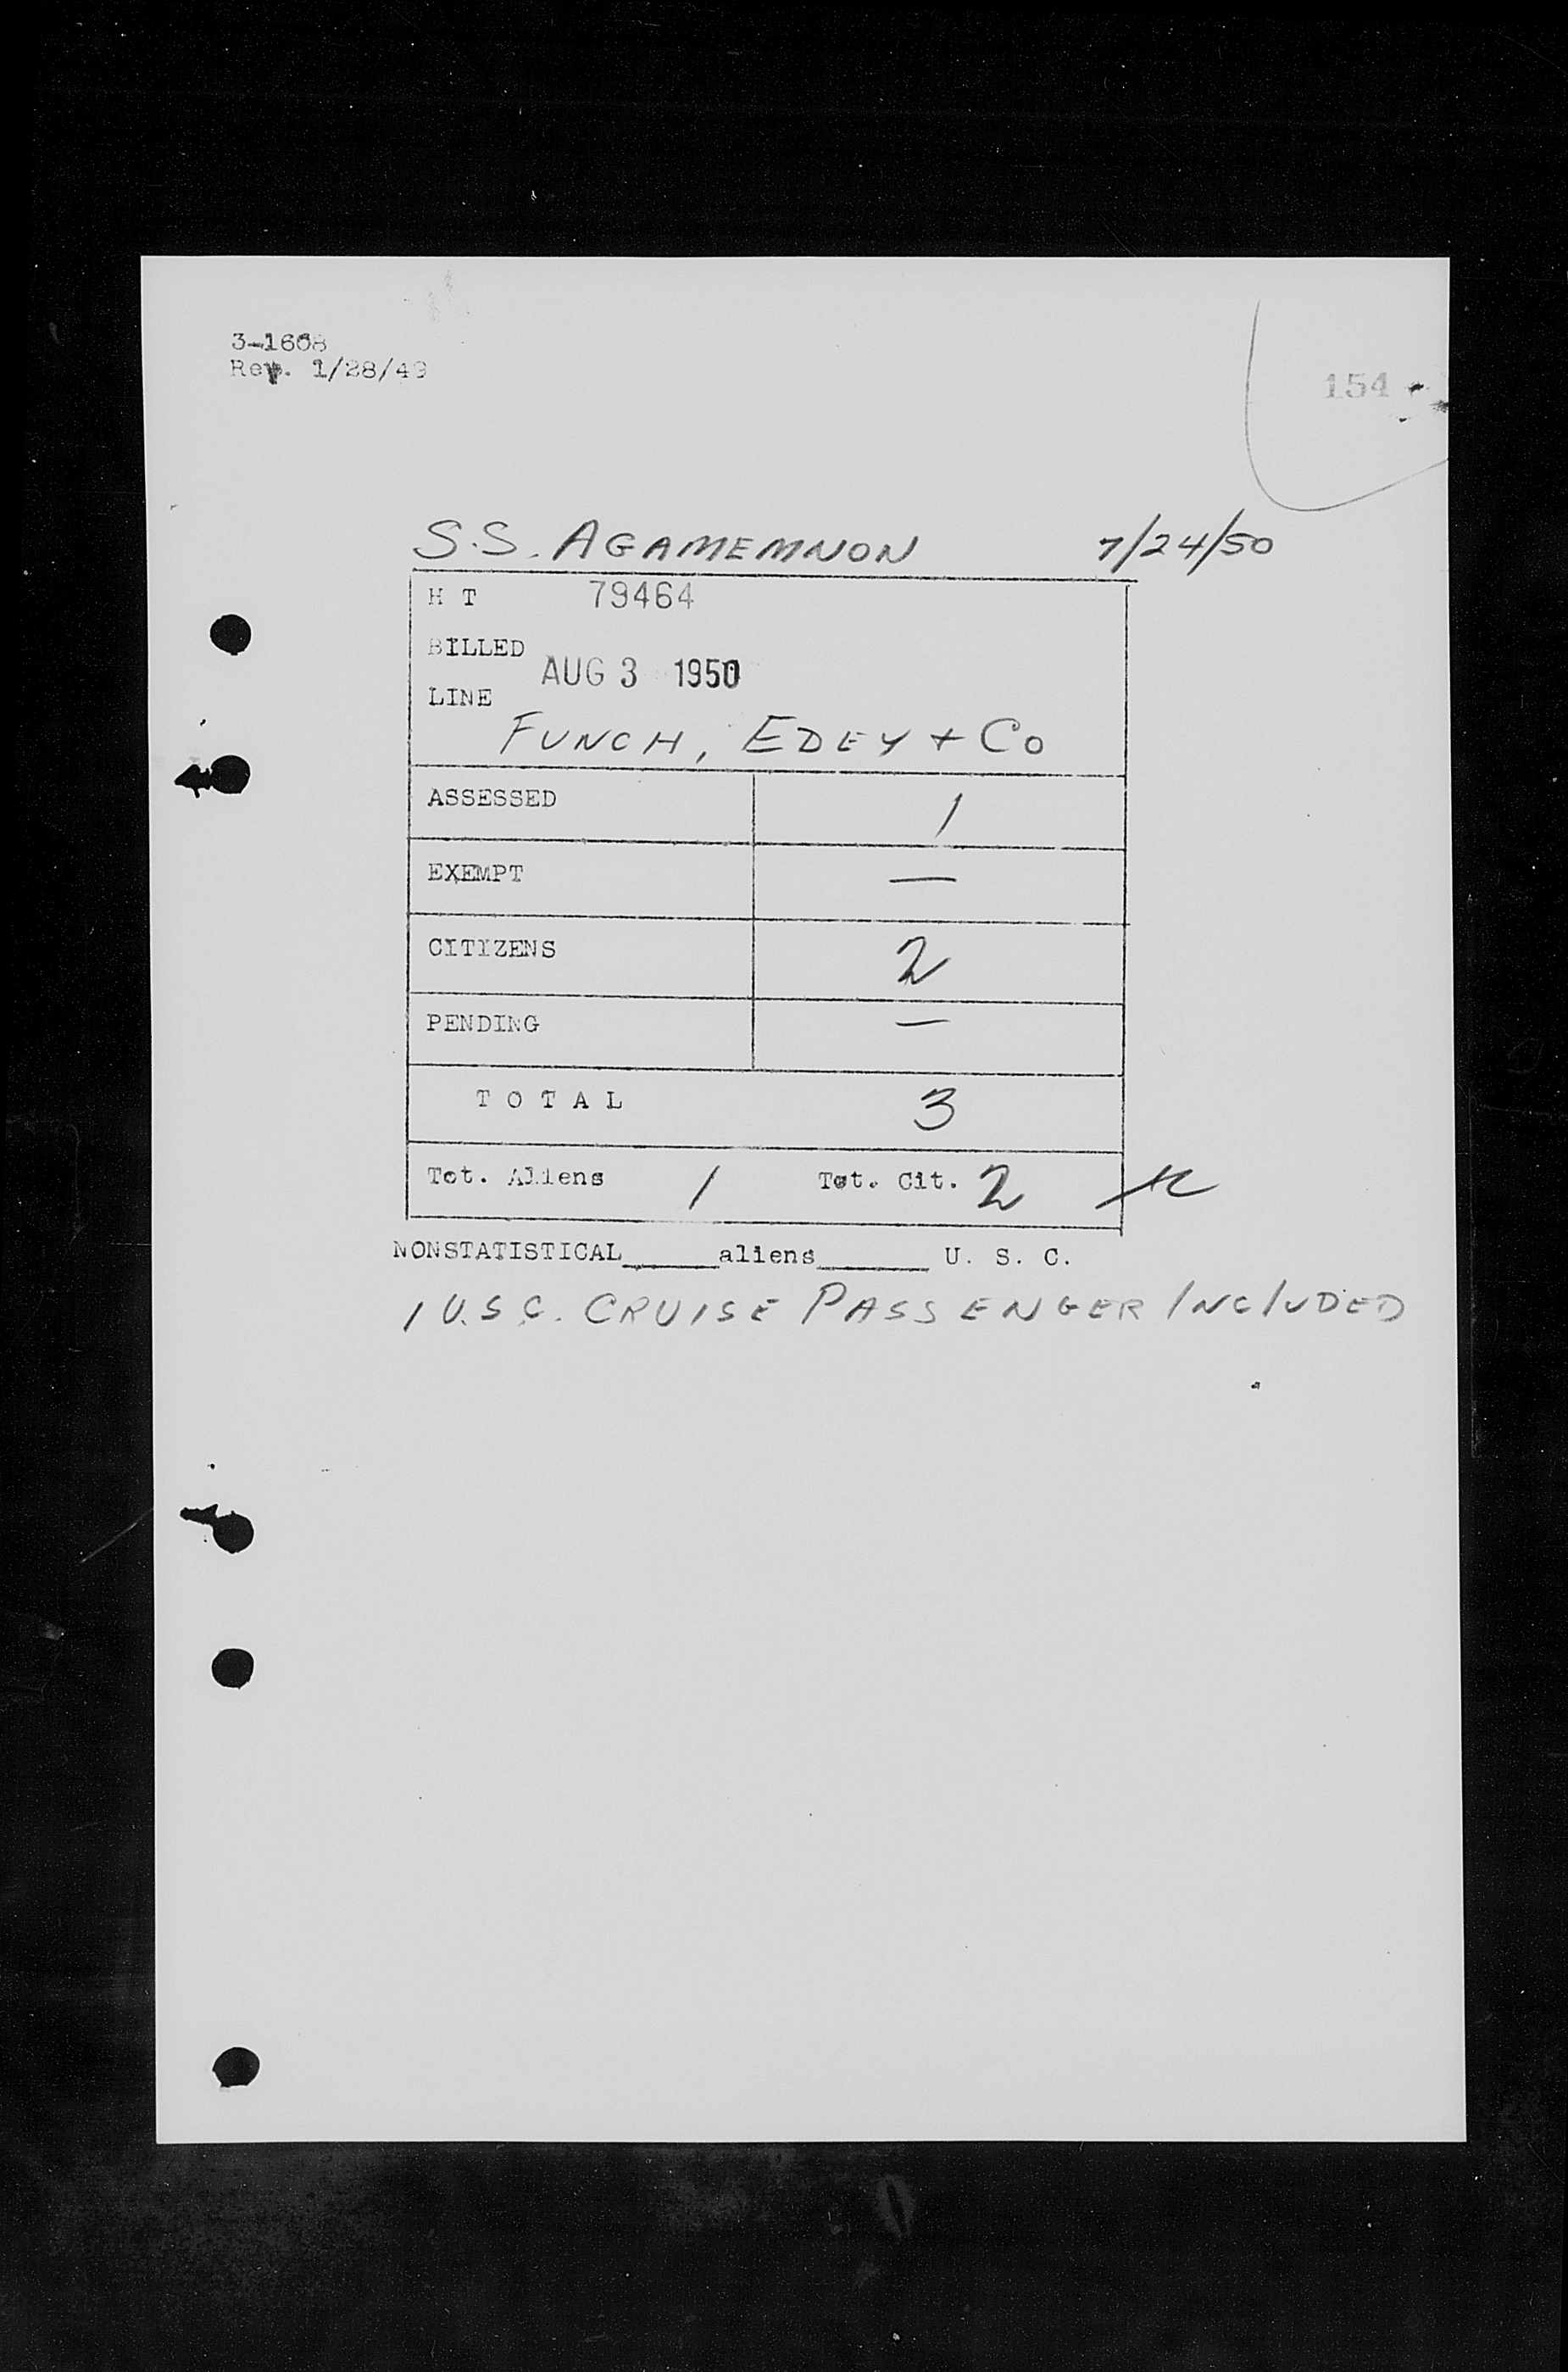 3-1608
Rev. 1/28/49
154
S.S. AGAMEMNON 7/24/50
H T 79464
BILLED
AUG 3 1950
LINE
FUNCH, EDEY + CO
ASSESSED 1
EXEMPT —
CITIZENS 2
PENDING —
T O T A L 3
Tot. Aliens 1 Tot. Cit. 2
NONSTATISTICAL_____aliens______ U. S. C.
1 U.S.C. CRUISE PASSENGER INCLUDED